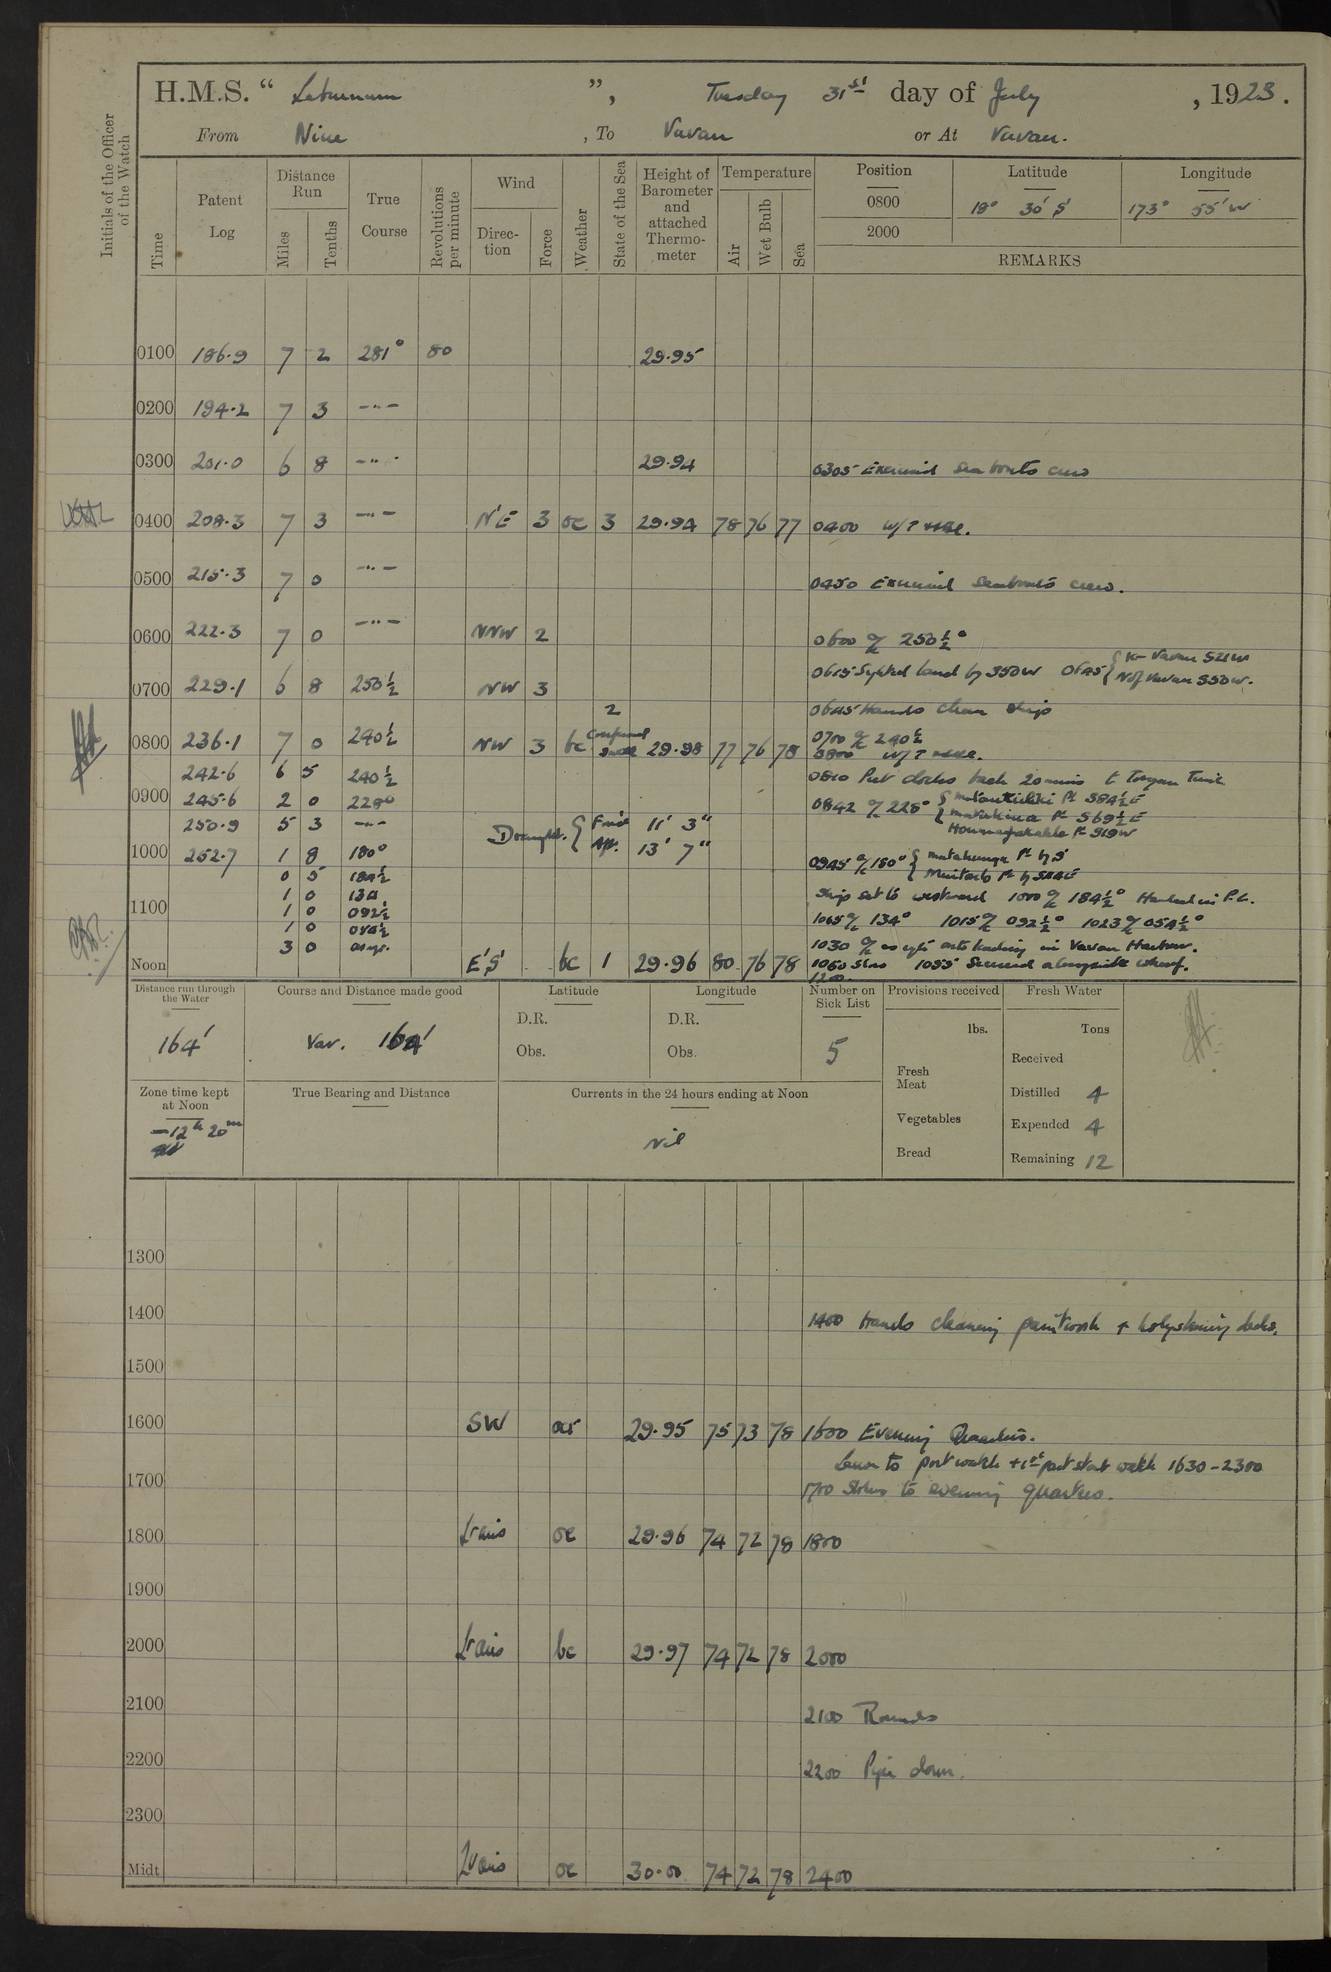 H.M.S. “ Laburnum ”, Tuesday 31st day of July , 1923.
From Niue , To Vavau or At Vavau.
Initials of the Officer of the Watch
Time
Patent Log
Distance Run
Miles
Tenths
True Course
Revolutions per minute
Wind
Direction
Force
Weather
State of the Sea
Height of Barometer and attached Thermometer
Temperature
Air
Wet Bulb
Sea
Position Latitude Longitude
0800 18° 30' S' 173° 55' W
2000
REMARKS
0100 186.9 7 2 281° 80 29.95
0200 194.2 7 3 -"-
0300 201.0 6 8 -"- 29.94 0305 Exercised Sea boats crew
0400 208.3 7 3 -"- N'E 3 oc 3 29.94 78 76 77 0400 W/T
0500 215.3 7 0 -"- 0450 Exercised Seaboats crew.
0600 222.3 7 0 -"- NNW 2 0600 a/c 250½°
0615 Sighted land by S50W 0645 { Vavau S21W
N of Vavau S50W.
0700 229.1 6 8 250½ NW 3
0645 Hands clean ship
2
0800 236.1 7 0 240½ NW 3 bc Confused swell 29.98 77 76 78 0700 a/c 240½
0800 W/T
242.6 6 5 240½ 0810 Put clocks back 20 mins to Tongan Time
0900 245.6 2 0 228° 0842 a/c 228° { Pt S84½E
Pt S69½E
Pt S19W
250.9 5 3 -"- Draught. { Ford 11' 3"
Aft. 13' 7"
1000 252.7 1 8 180° 0945 a/c 180° { Pt by S'
Pt by
0 5 184½
1 0 134 Ship set to westward 1000 a/c 184½° Hauled in P.L.
1100 1 0 092½ 1005 a/c 134° 1015 a/c 092½° 1023 a/c 054½°
1 0 054½
3 0 as req. 1030 a/c as req. into harbour in Vavau Harbour.
Noon E'S' bc 1 29.96 80 76 78 1050 Slow 1055 Secured alongside wharf.
1200
Distance run through the Water
164'
Course and Distance made good
Var. 164'
Latitude
D.R.
Obs.
Longitude
D.R.
Obs.
Number on Sick List
5
Provisions received
lbs.
Fresh Meat
Vegetables
Bread
Fresh Water
Tons
Received
Distilled 4
Expended 4
Remaining 12
Zone time kept at Noon
-12h 20m
True Bearing and Distance
Currents in the 24 hours ending at Noon
Nil
1300
1400 1400 Hands cleaning paintwork + holystoning decks.
1500
1600 SW 29.95 75 73 78 1600 Evening Quarters.
Leave to port watch + 1st part starb watch 1630-2300
1700 1700 Stokers to evening quarters.
1800 Lt airs oc 29.96 74 72 78 1800
1900
2000 Lt airs bc 29.97 74 72 78 2000
2100 2100 Rounds
2200 2200 Pipe down.
2300
Midt Lt airs oc 30.00 74 72 78 2400